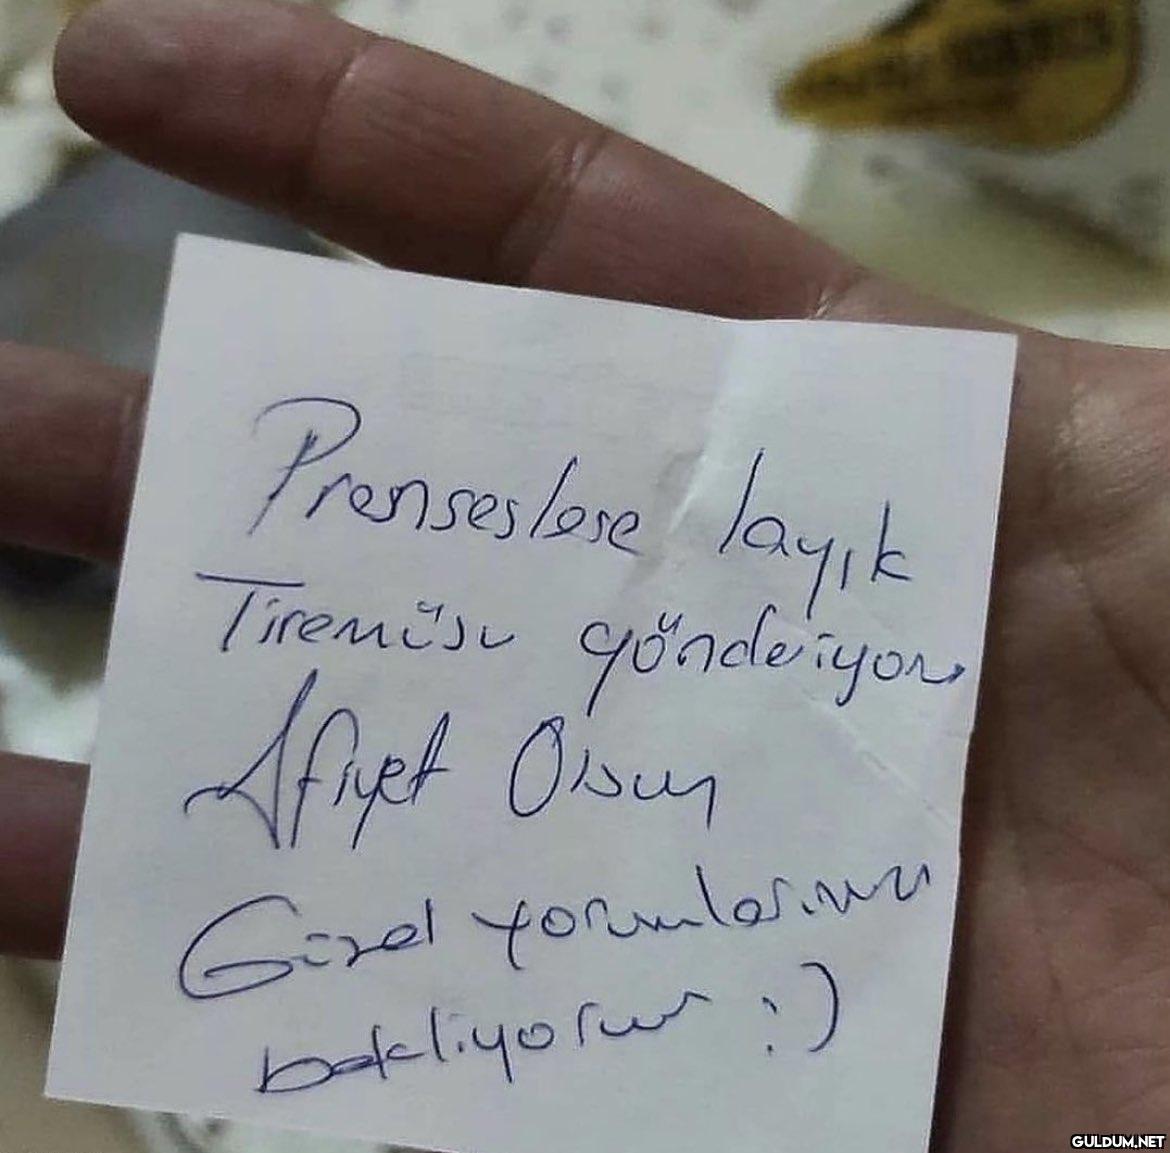 Prenseslere layık
Tiremüsu gönderiyorum
Afiyet Olsun
Güzel yorumlarınızı
bekliyorum :)
GULDUM.NET